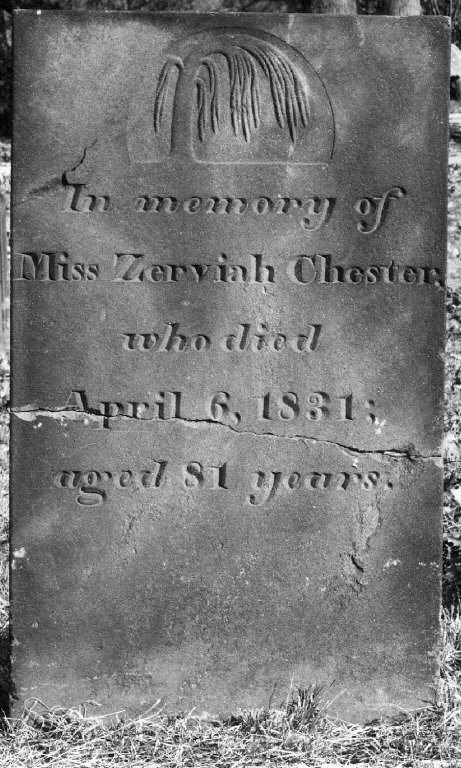 In memory of
Miss Zerviah Chester,
who died
April 6, 1831;
aged 81 years.